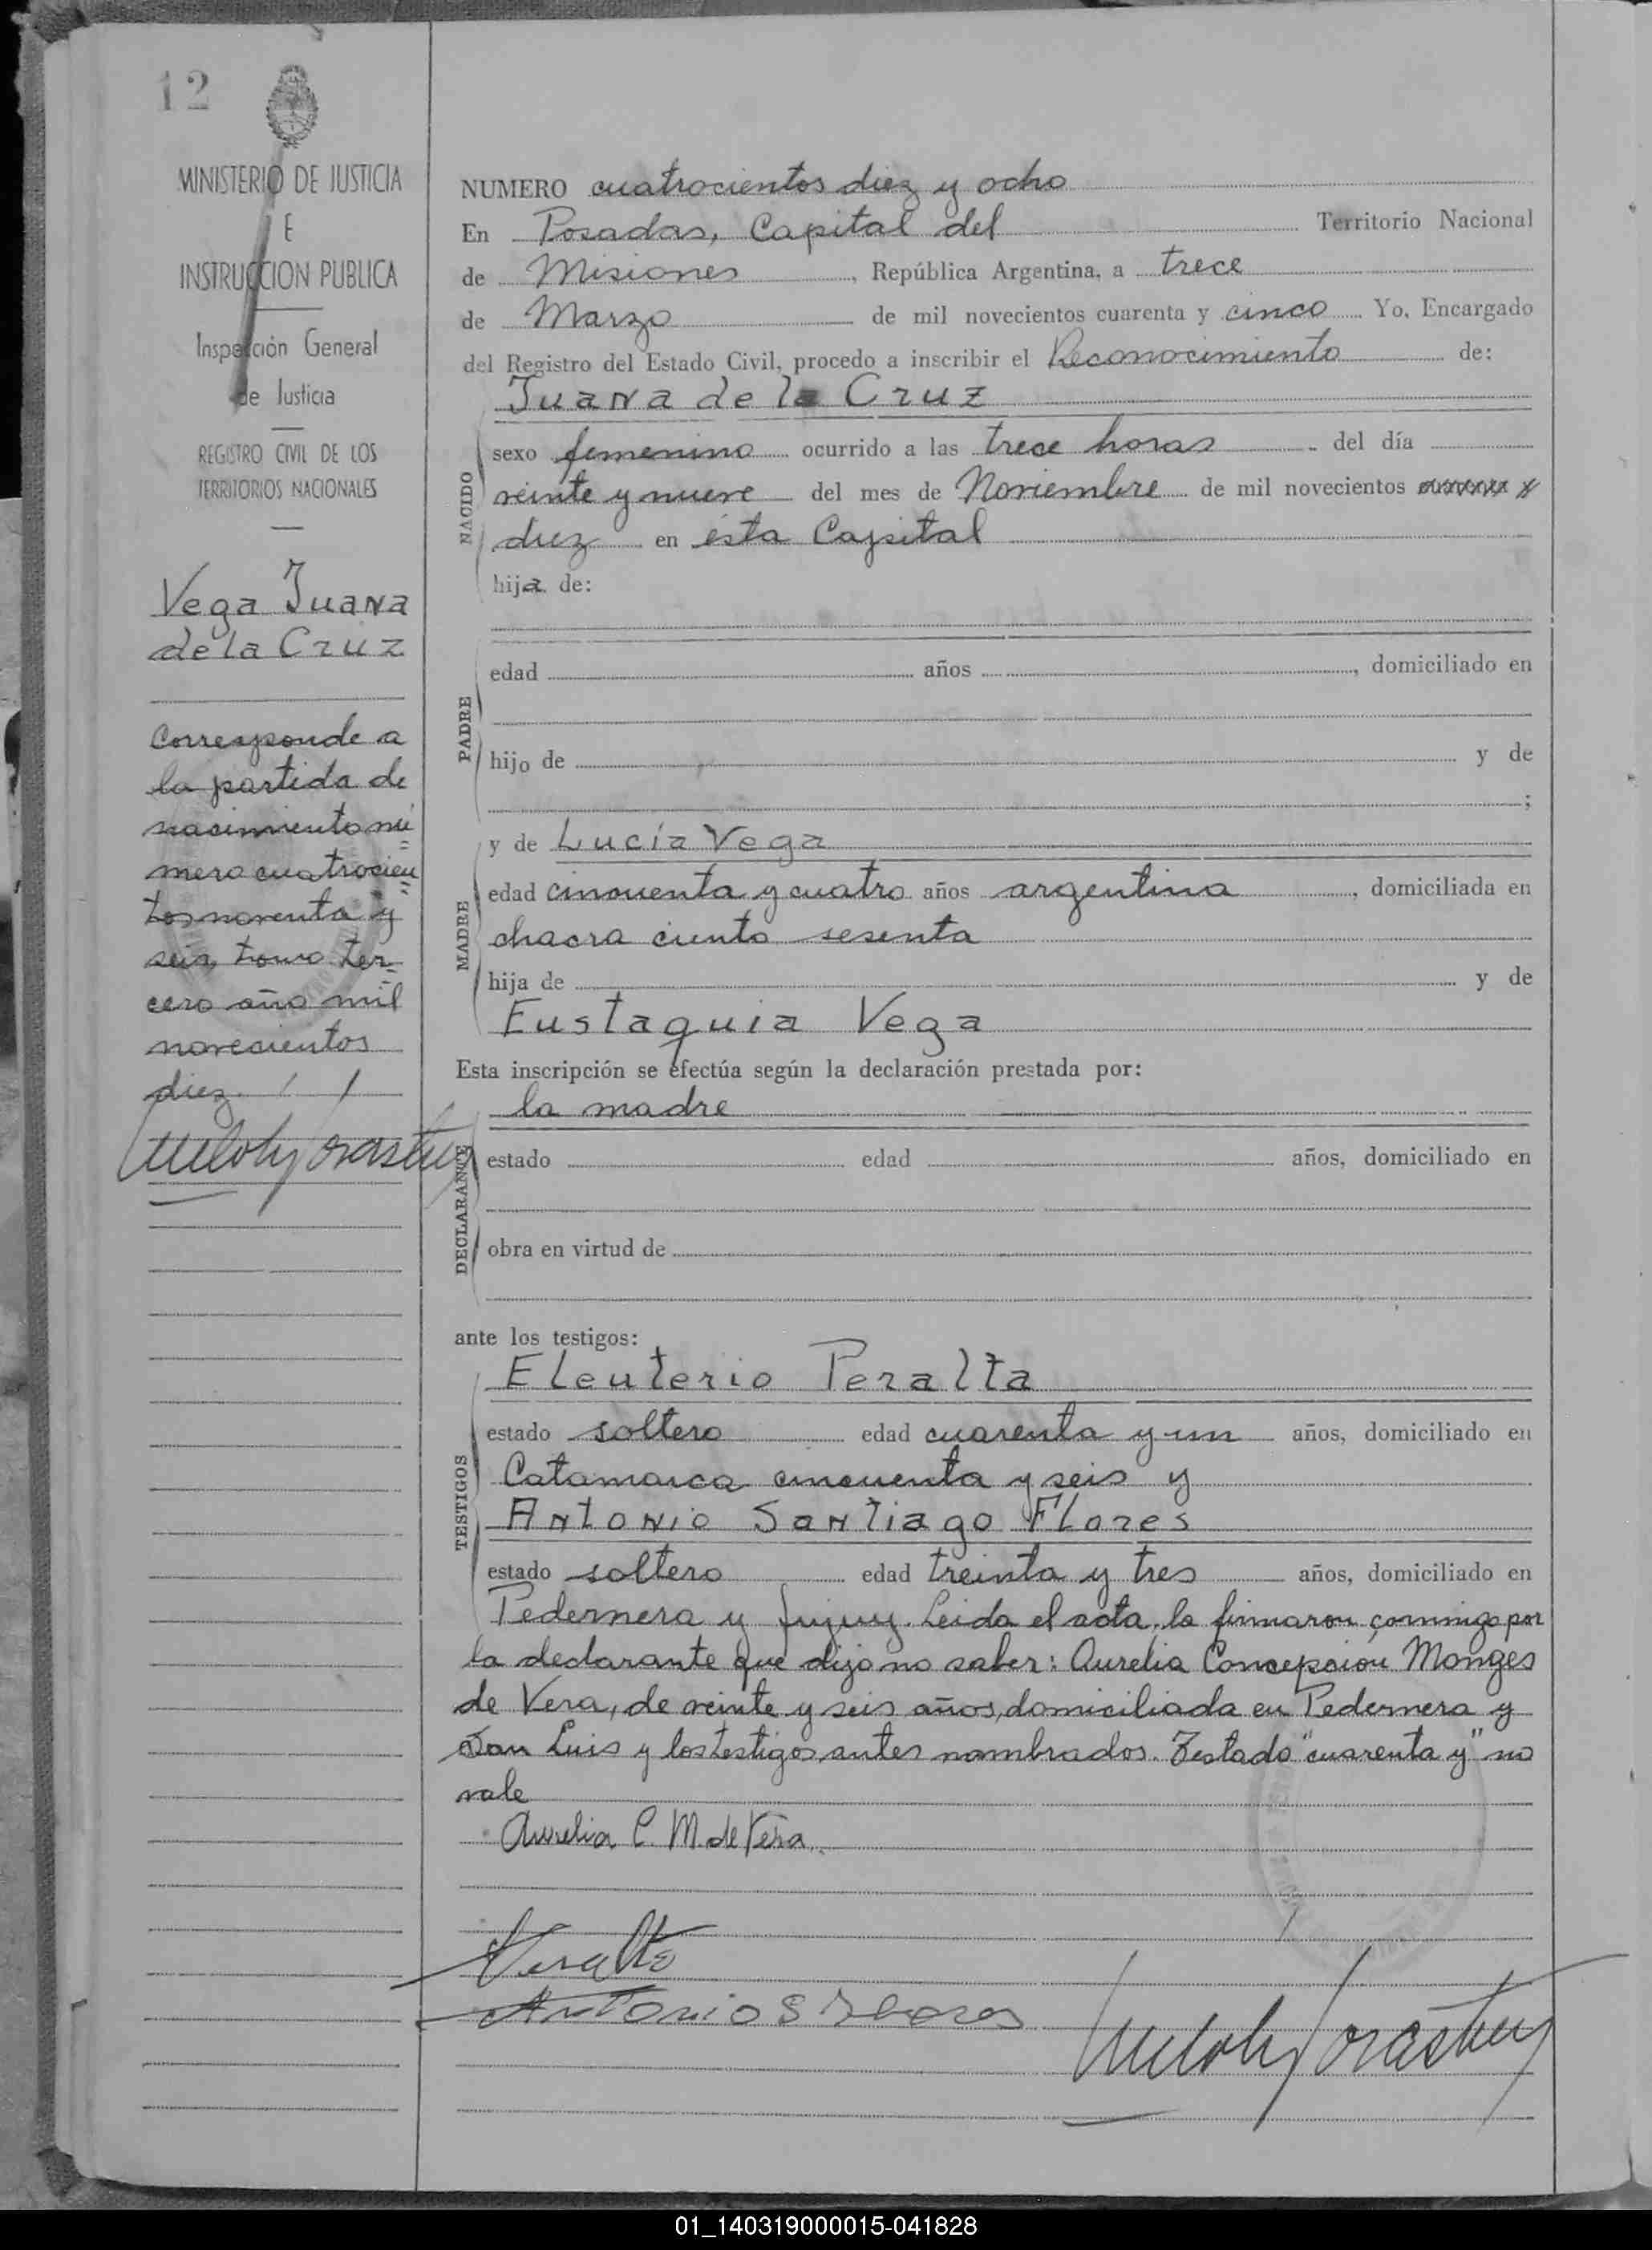 12
MINISTERIO DE JUSTICIA
E
INSTRUCCION PUBLICA
Inspección General
de Justicia
REGISTRO CIVIL DE LOS
TERRITORIOS NACIONALES
Vega Juana
de la Cruz
Corresponde a
la partida de
nacimiento nú
mero cuatrocien
tos noventa y
seis, tomo ter
cero año mil
novecientos
diez
NUMERO cuatrocientos diez y ocho
En Posadas, Capital del Territorio Nacional
de Misiones, República Argentina, a trece
de Marzo de mil novecientos cuarenta y cinco Yo, Encargado
del Registro del Estado Civil, procedo a inscribir el Reconocimiento de:
Juana de la Cruz
NACIDO
sexo femenino ocurrido a las trece horas del día
veinte y nueve del mes de Noviembre de mil novecientos
diez en ésta Capital
hija de:
PADRE
edad años , domiciliado en
hijo de y de
;
MADRE
y de Lucía Vega
edad cincuenta y cuatro años argentina, domiciliada en
chacra ciento sesenta
hija de y de
Eustaquia Vega
Esta inscripción se efectúa según la declaración prestada por:
la madre
DECLARANTE
estado edad años, domiciliado en
obra en virtud de
ante los testigos:
TESTIGOS
Eleuterio Peralta
estado soltero edad cuarenta y un años, domiciliado en
Catamarca cincuenta y seis y
Antonio Santiago Flores
estado soltero edad treinta y tres años, domiciliado en
Pedernera y Jujuy. Leida el acta, la firmaron conmigo por
la declarante que dijo no saber: Aurelia Concepción Monges
de Vera, de veinte y seis años, domiciliada en Pedernera y
San Luis y los testigos antes nombrados. Testado "cuarenta y" no
vale
Aurelia C. M. de Vera
Peralta
Antonio S Flores
01_140319000015-041828